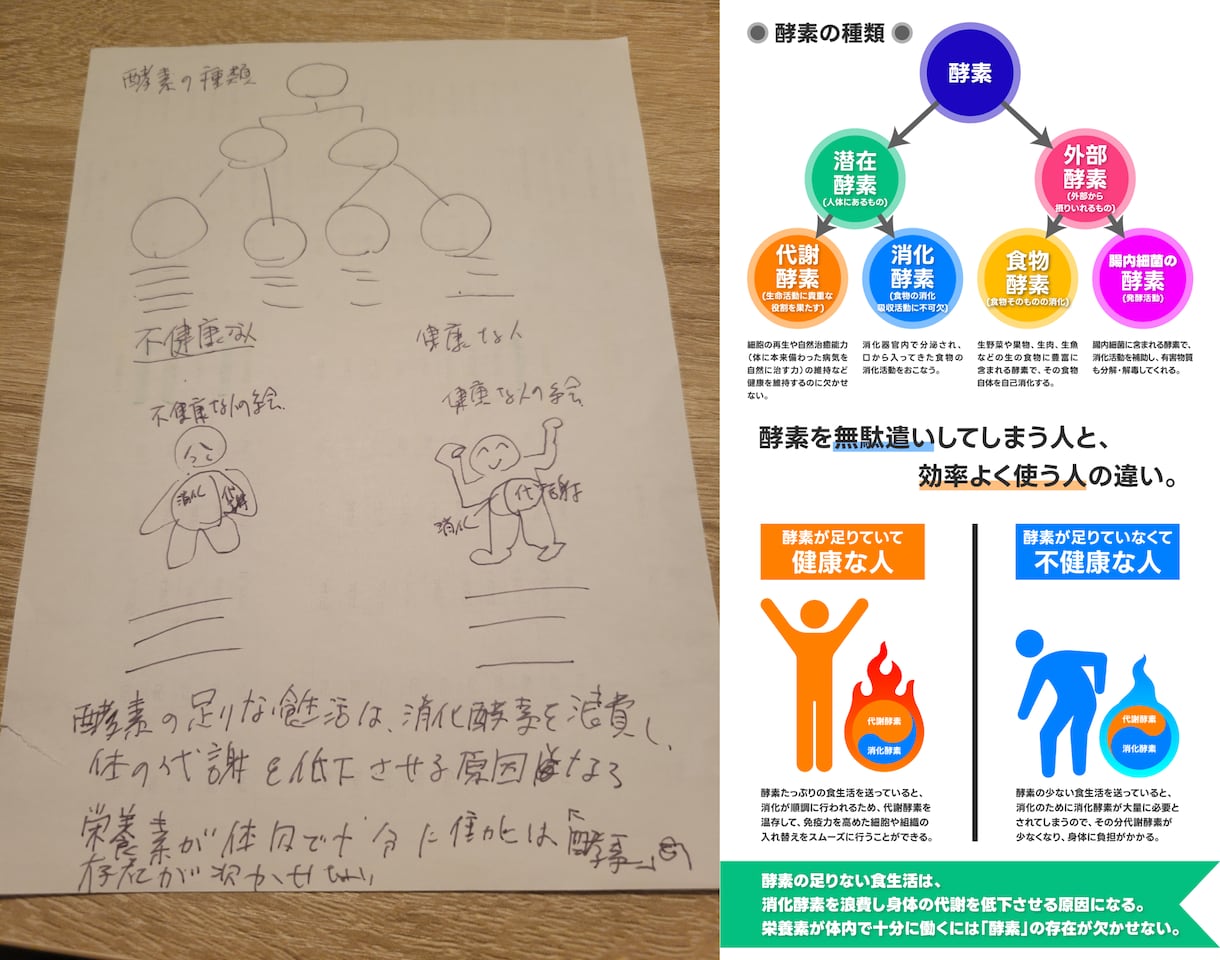 酵素の種類
不健康な人
健康な人
不健康な人の絵
健康な人の絵
消化
代謝
代謝
消化
酵素の足りな食生活は、消化酵素を浪費し、
体の代謝を低下させる原因になる
栄養素が体内で十分に働くには「酵素」の
存在が欠かせない
酵素の種類
酵素
潜在
酵素
(人体にあるもの)
外部
酵素
(外部から
摂りいれるもの)
代謝
酵素
(生命活動に貴重な
役割を果たす)
消化
酵素
(食物の消化
吸収活動に不可欠)
食物
酵素
(食物そのものの消化)
腸内細菌の
酵素
(発酵活動)
細胞の再生や自然治癒能力
(体に本来備わった病気を
自然に治す力)の維持など
健康を維持するのに欠かせ
ない。
消化器官内で分泌され、
口から入ってきた食物の
消化活動をおこなう。
生野菜や果物、生肉、生魚
などの生の食物に豊富に
含まれる酵素で、その食物
自体を自己消化する。
腸内細菌に含まれる酵素で、
消化活動を補助し、有害物質
も分解・解毒してくれる。
酵素を無駄遣いしてしまう人と、
効率よく使う人の違い。
酵素が足りていて
健康な人
代謝酵素
消化酵素
酵素たっぷりの食生活を送っていると、
消化が順調に行われるため、代謝酵素を
温存して、免疫力を高めた細胞や組織の
入れ替えをスムーズに行うことができる。
酵素が足りていなくて
不健康な人
代謝酵素
消化酵素
酵素の少ない食生活を送っていると、
消化のために消化酵素が大量に必要と
されてしまうので、その分代謝酵素が
少なくなり、身体に負担がかかる。
酵素の足りない食生活は、
消化酵素を浪費し身体の代謝を低下させる原因になる。
栄養素が体内で十分に働くには「酵素」の存在が欠かせない。